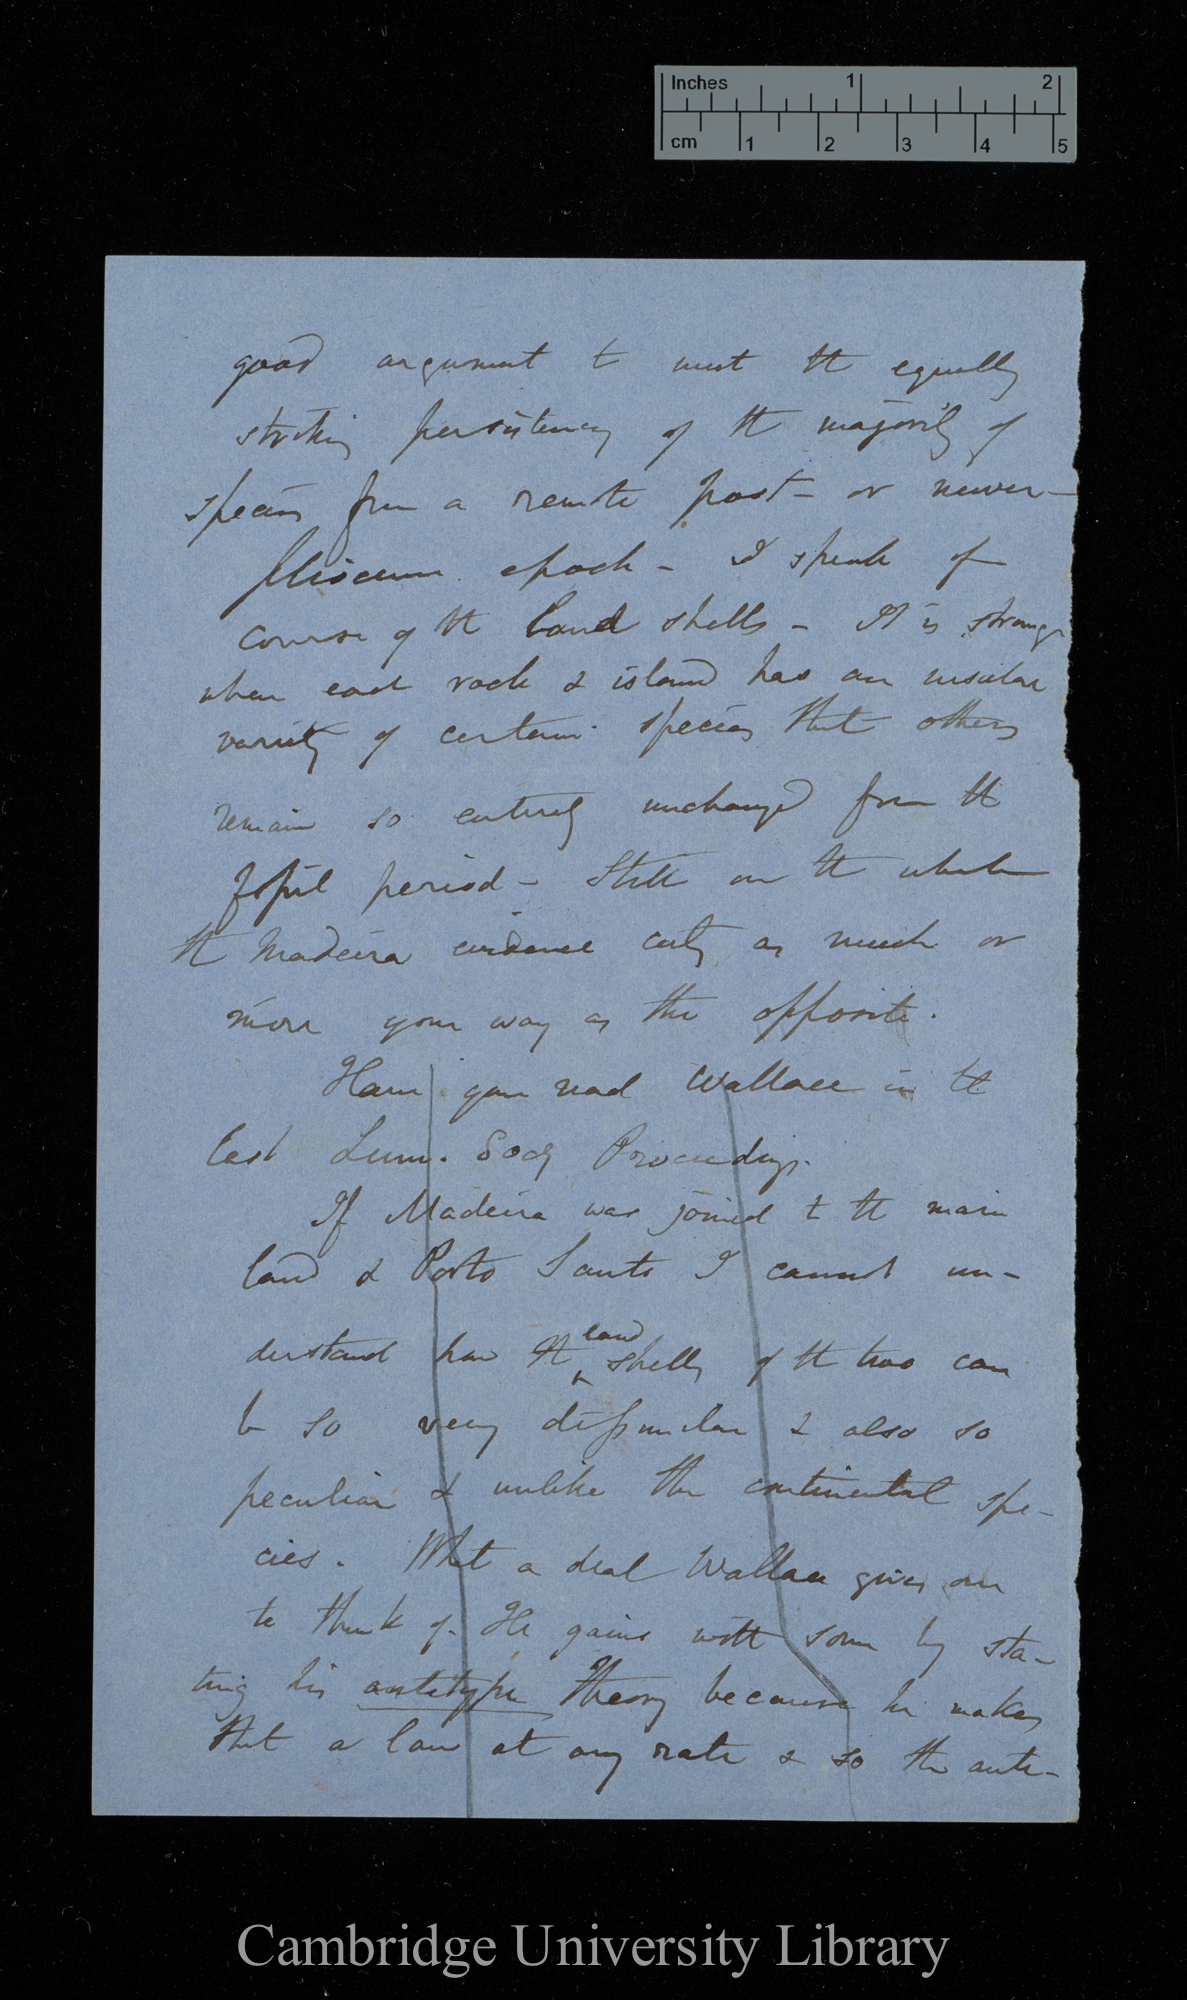 Inches 1 2
cm 1 2 3 4 5
good argument to meet the equally
striking persistency of the majority of
species from a remote post- or newer-
Pliocene epoch - I speak of
course of the land shells - It is strange
when each rock & island has an insular
variety of certain species that others
remain so entirely unchanged from the
fossil period - Still on the whole
the Madeira evidence cuts as much or
more your way as the opposite.
Have you read Wallace in the
last Linn. Socy Proceedings.
If Madeira was joined to the main
land & Porto Santo I cannot un-
derstand how the land shells of the two can
be so very dissimilar & also so
peculiar & unlike the continental spe-
cies. What a deal Wallace gives one
to think of. He gains with some by sta-
ting his antitype Theory because he makes
that a law at any rate & so the ante-
Cambridge University Library